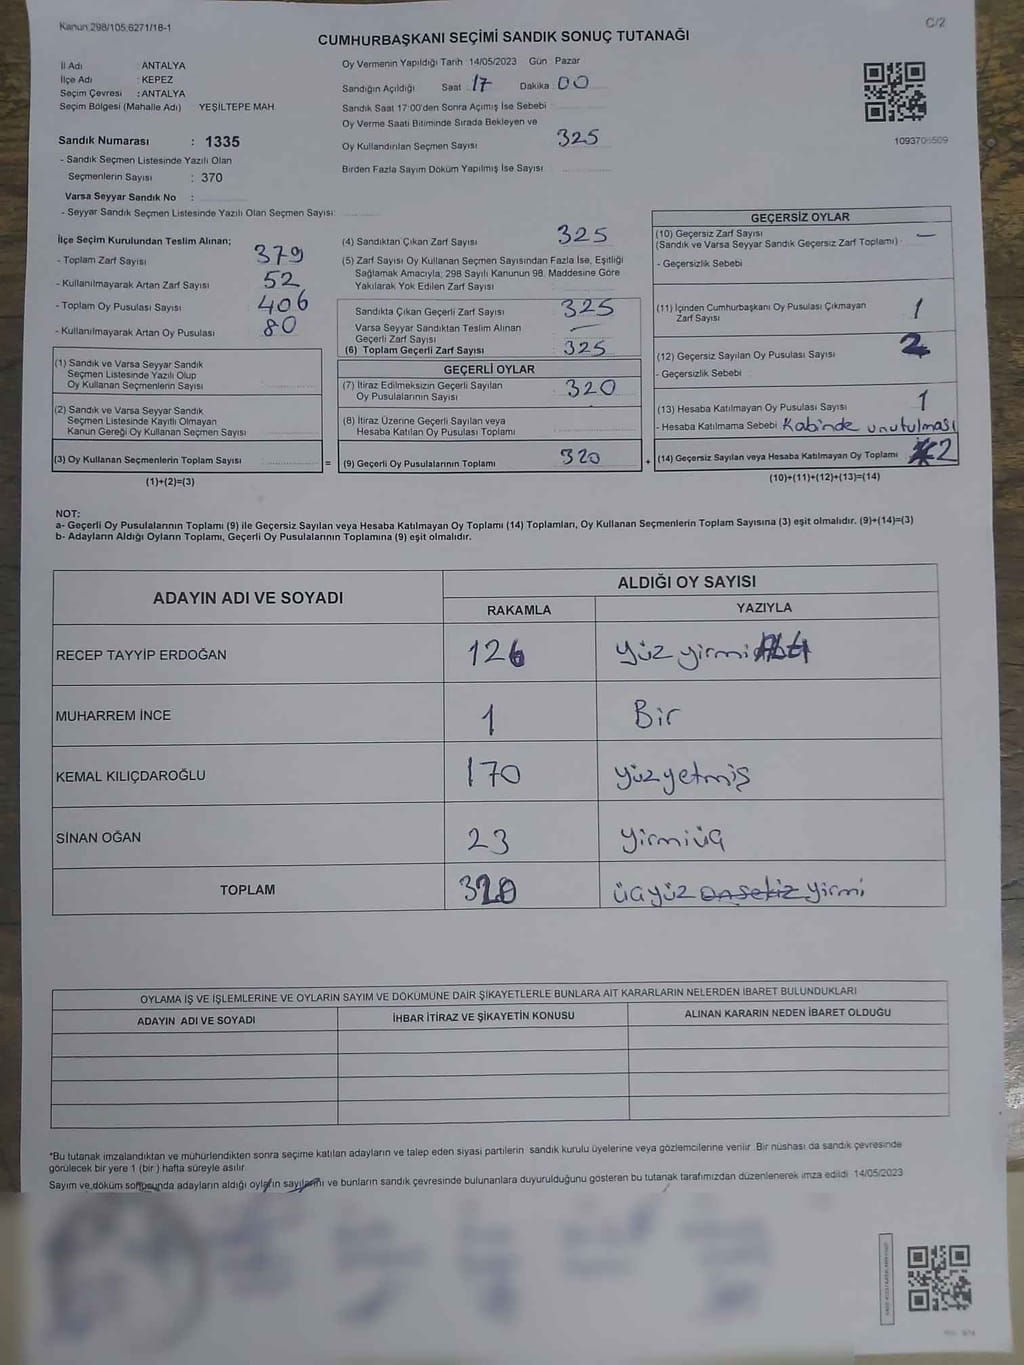 Kanun 298/105 6271/18-1
C/2
CUMHURBAŞKANI SEÇİMİ SANDIK SONUÇ TUTANAĞI
İl Adı : ANTALYA
İlçe Adı : KEPEZ
Seçim Çevresi : ANTALYA
Seçim Bölgesi (Mahalle Adı) YEŞİLTEPE MAH.
Oy Vermenin Yapıldığı Tarih 14/05/2023 Gün Pazar
Sandığın Açıldığı Saat 17 Dakika 00
Sandık Saat 17:00'den Sonra Açımış İse Sebebi
Oy Verme Saati Bitiminde Sırada Bekleyen ve
Oy Kullandırılan Seçmen Sayısı 325
Birden Fazla Sayım Döküm Yapılmış İse Sayısı
Sandık Numarası : 1335
- Sandık Seçmen Listesinde Yazılı Olan
Seçmenlerin Sayısı : 370
Varsa Seyyar Sandık No :
- Seyyar Sandık Seçmen Listesinde Yazılı Olan Seçmen Sayısı:
İlçe Seçim Kurulundan Teslim Alınan;
- Toplam Zarf Sayısı 379
- Kullanılmayarak Artan Zarf Sayısı 52
- Toplam Oy Pusulası Sayısı 406
- Kullanılmayarak Artan Oy Pusulası 80
(1) Sandık ve Varsa Seyyar Sandık
Seçmen Listesinde Yazılı Olup
Oy Kullanan Seçmenlerin Sayısı
(2) Sandık ve Varsa Seyyar Sandık
Seçmen Listesinde Kayıtlı Olmayan
Kanun Gereği Oy Kullanan Seçmen Sayısı
(3) Oy Kullanan Seçmenlerin Toplam Sayısı
(1)+(2)=(3)
(4) Sandıktan Çıkan Zarf Sayısı 325
(5) Zarf Sayısı Oy Kullanan Seçmen Sayısından Fazla İse, Eşitliği
Sağlamak Amacıyla, 298 Sayılı Kanunun 98. Maddesine Göre
Yakılarak Yok Edilen Zarf Sayısı
Sandıkta Çıkan Geçerli Zarf Sayısı 325
Varsa Seyyar Sandıktan Teslim Alınan
Geçerli Zarf Sayısı –
(6) Toplam Geçerli Zarf Sayısı 325
GEÇERLİ OYLAR
(7) İtiraz Edilmeksizin Geçerli Sayılan
Oy Pusulalarının Sayısı 320
(8) İtiraz Üzerine Geçerli Sayılan veya
Hesaba Katılan Oy Pusulası Toplamı
= (9) Geçerli Oy Pusulalarının Toplamı 320 +
GEÇERSİZ OYLAR
(10) Geçersiz Zarf Sayısı –
(Sandık ve Varsa Seyyar Sandık Geçersiz Zarf Toplamı)
- Geçersizlik Sebebi
(11) İçinden Cumhurbaşkanı Oy Pusulası Çıkmayan
Zarf Sayısı 1
(12) Geçersiz Sayılan Oy Pusulası Sayısı 2
- Geçersizlik Sebebi
(13) Hesaba Katılmayan Oy Pusulası Sayısı 1
- Hesaba Katılmama Sebebi Kabinde unutulması
(14) Geçersiz Sayılan veya Hesaba Katılmayan Oy Toplamı 2
(10)+(11)+(12)+(13)=(14)
NOT:
a- Geçerli Oy Pusulalarının Toplamı (9) ile Geçersiz Sayılan veya Hesaba Katılmayan Oy Toplamı (14) Toplamları, Oy Kullanan Seçmenlerin Toplam Sayısına (3) eşit olmalıdır. (9)+(14)=(3)
b- Adayların Aldığı Oyların Toplamı, Geçerli Oy Pusulalarının Toplamına (9) eşit olmalıdır.
ADAYIN ADI VE SOYADI
ALDIĞI OY SAYISI
RAKAMLA YAZIYLA
RECEP TAYYİP ERDOĞAN 126 yüz yirmi Altı
MUHARREM İNCE 1 Bir
KEMAL KILIÇDAROĞLU 170 yüzyetmiş
SİNAN OĞAN 23 yirmiüç
TOPLAM 320 üçyüz onsekiz yirmi
OYLAMA İŞ VE İŞLEMLERİNE VE OYLARIN SAYIM VE DÖKÜMÜNE DAİR ŞİKAYETLERLE BUNLARA AİT KARARLARIN NELERDEN İBARET BULUNDUKLARI
ADAYIN ADI VE SOYADI İHBAR İTİRAZ VE ŞİKAYETİN KONUSU ALINAN KARARIN NEDEN İBARET OLDUĞU
*Bu tutanak imzalandıktan ve mühürlendikten sonra seçime katılan adayların ve talep eden siyasi partilerin sandık kurulu üyelerine veya gözlemcilerine verilir. Bir nüshası da sandık çevresinde
görülecek bir yere 1 (bir) hafta süreyle asılır.
Sayım ve döküm sonucunda adayların aldığı oyların sayılarını ve bunların sandık çevresinde bulunanlara duyurulduğunu gösteren bu tutanak tarafımızdan düzenlenerek imza edildi 14/05/2023